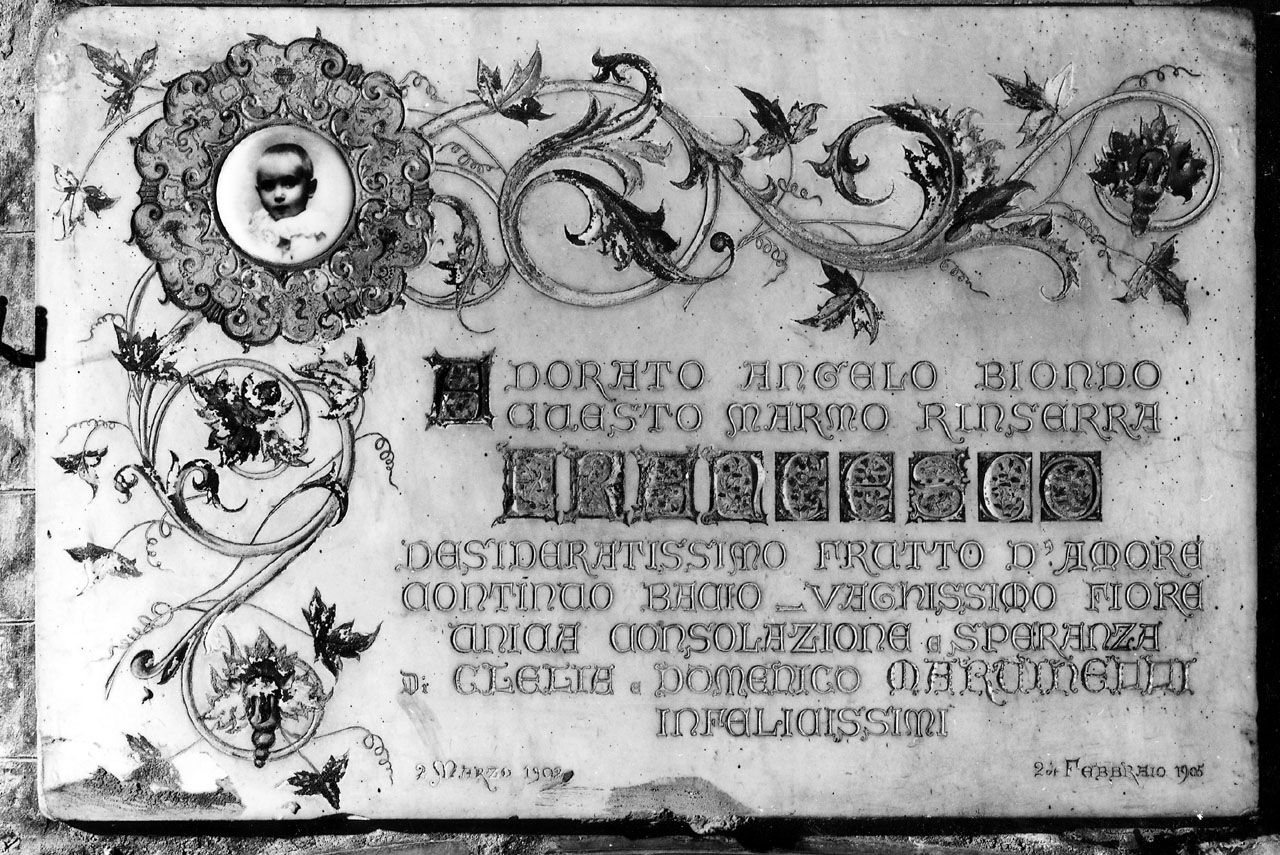 ADORATO ANGELO BIONDO
QUESTO MARMO RINSERRA
FRANCESCO
DESIDERATISSIMO FRUTTO D'AMORE
CONTINUO BACIO _ VAGHISSIMO FIORE
UNICA CONSOLAZIONE e SPERANZA
Di CLELIA e DOMENICO MARTINELLI
INFELICISSIMI
9 MARZO 1902
24 FEBBRAIO 1905